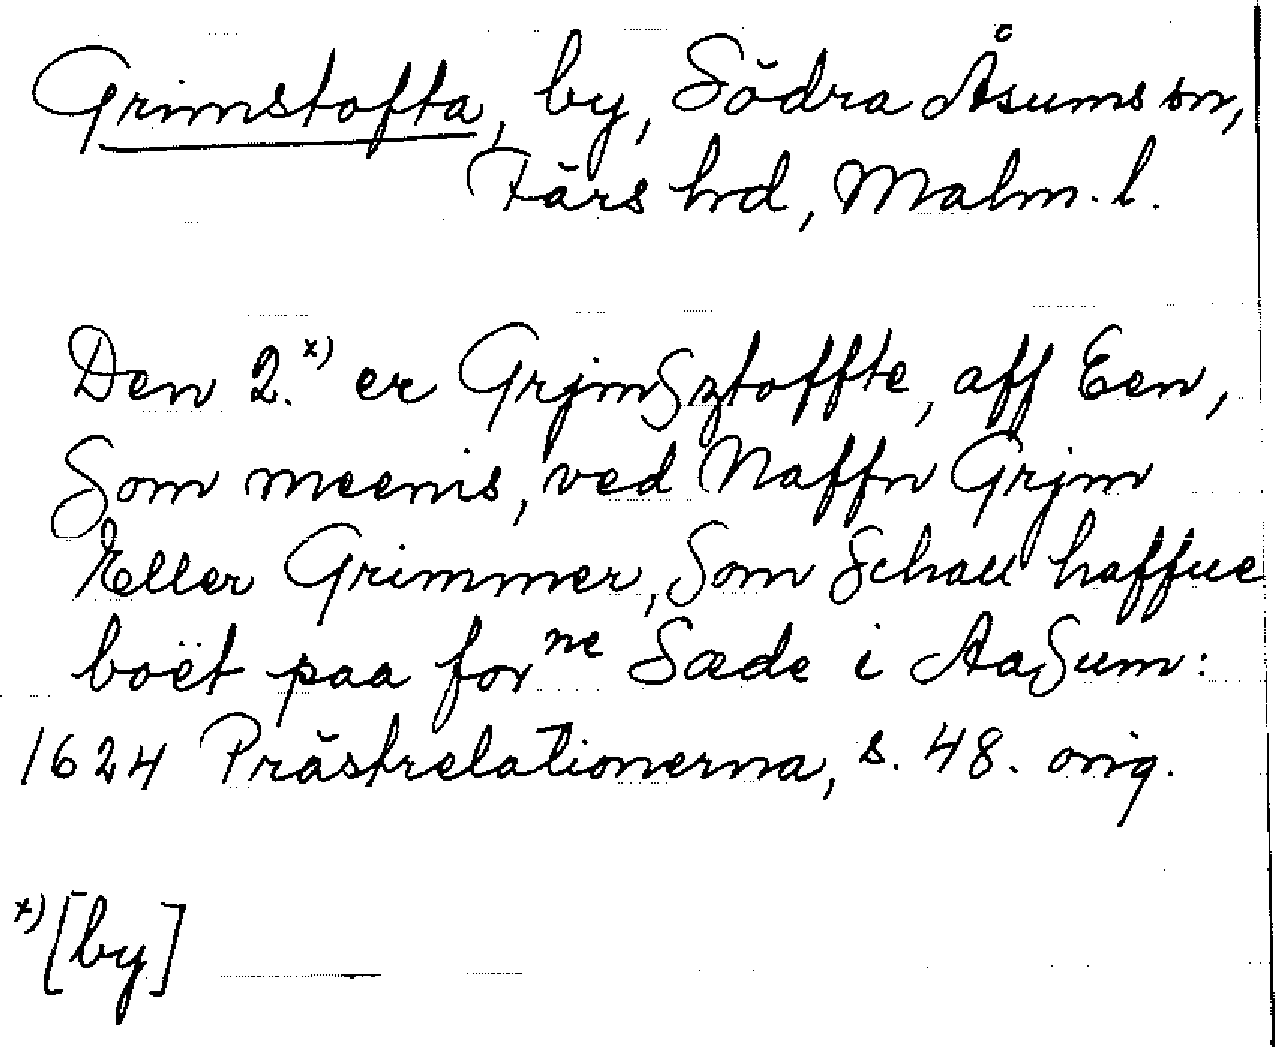 Grimstofta, by, Södra Åsums sn,
Färs hd, Malm. l.
Den 2.x) er GrjmSztoffte, aff Een,
Som meenis, ved Naffn Grjm
Eller Grimmer, Som Schall haffue
boët paa forne Sæde i AaSum:
1624 Prästrelationerna, s. 48. orig.
x) [by]